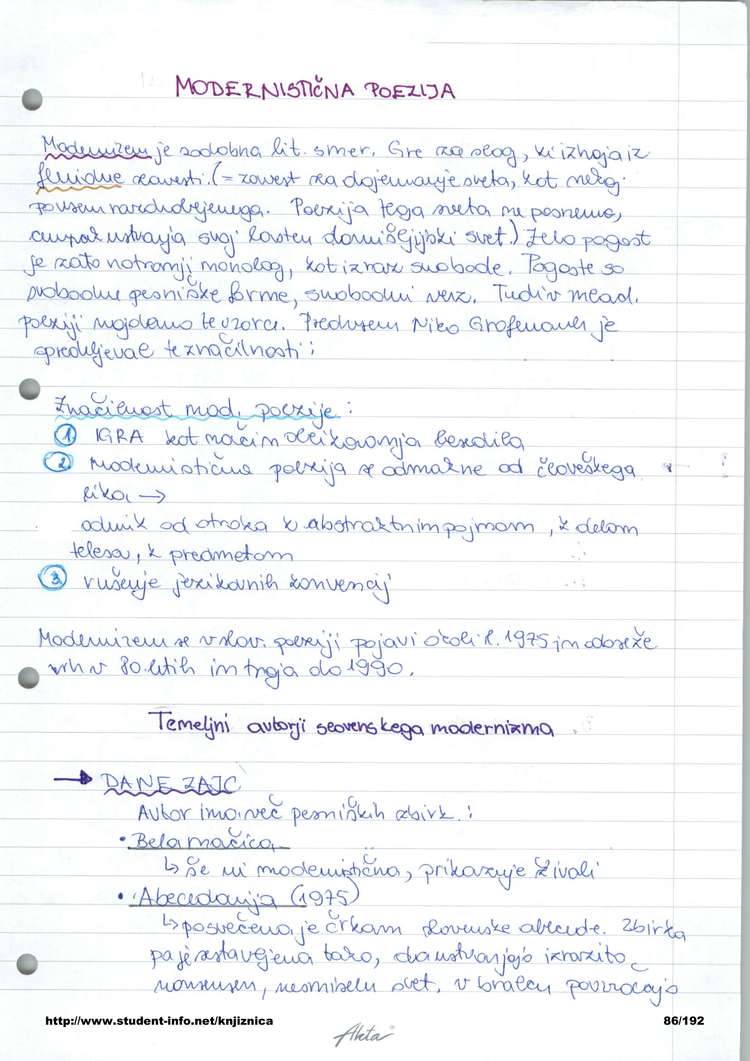 MODERNISTIČNA POEZIJA
Modernizem je sodobna lit. smer. Gre za slog, ki izhaja iz
fluidne zavesti. (= zavest za dojemanje sveta, kot nekaj
povsem razdrobljenega. Poezija tega sveta ne posnema,
ampak ustvarja svoj lasten domišljijski svet.) Zelo pogost
je zato notranji monolog, kot izraz svobode. Pogoste so
svobodne pesniške forme, svobodni verz. Tudi v mlad.
poeziji najdemo te vzorce. Predvsem Niko Grafenauer je
opredeljeval te značilnosti:
Značilnost mod. poezije:
1 IGRA kot način oblikovanja besedila
2 Modernistična poezija se odmakne od človeškega
lika →
odmik od otroka k abstraktnim pojmom, k delom
telesa, k predmetom
3 rušenje jezikovnih konvencij
Modernizem se v slov. poeziji pojavi okoli l. 1975 in doseže
vrh v 80. letih in traja do 1990.
Temeljni avtorji slovenskega modernizma
→ DANE ZAJC
Avtor ima več pesniških zbirk:
• Bela mačica
↳ še ni modernistična, prikazuje živali
• Abecedarija (1975)
↳ posvečena je črkam slovenske abecede. Zbirka
pa je sestavljena tako, da ustvarjajo izrazito
nonsensen, nesmiseln svet, v bralcu povzročajo
http://www.student-info.net/knjiznica 86/192
Akta